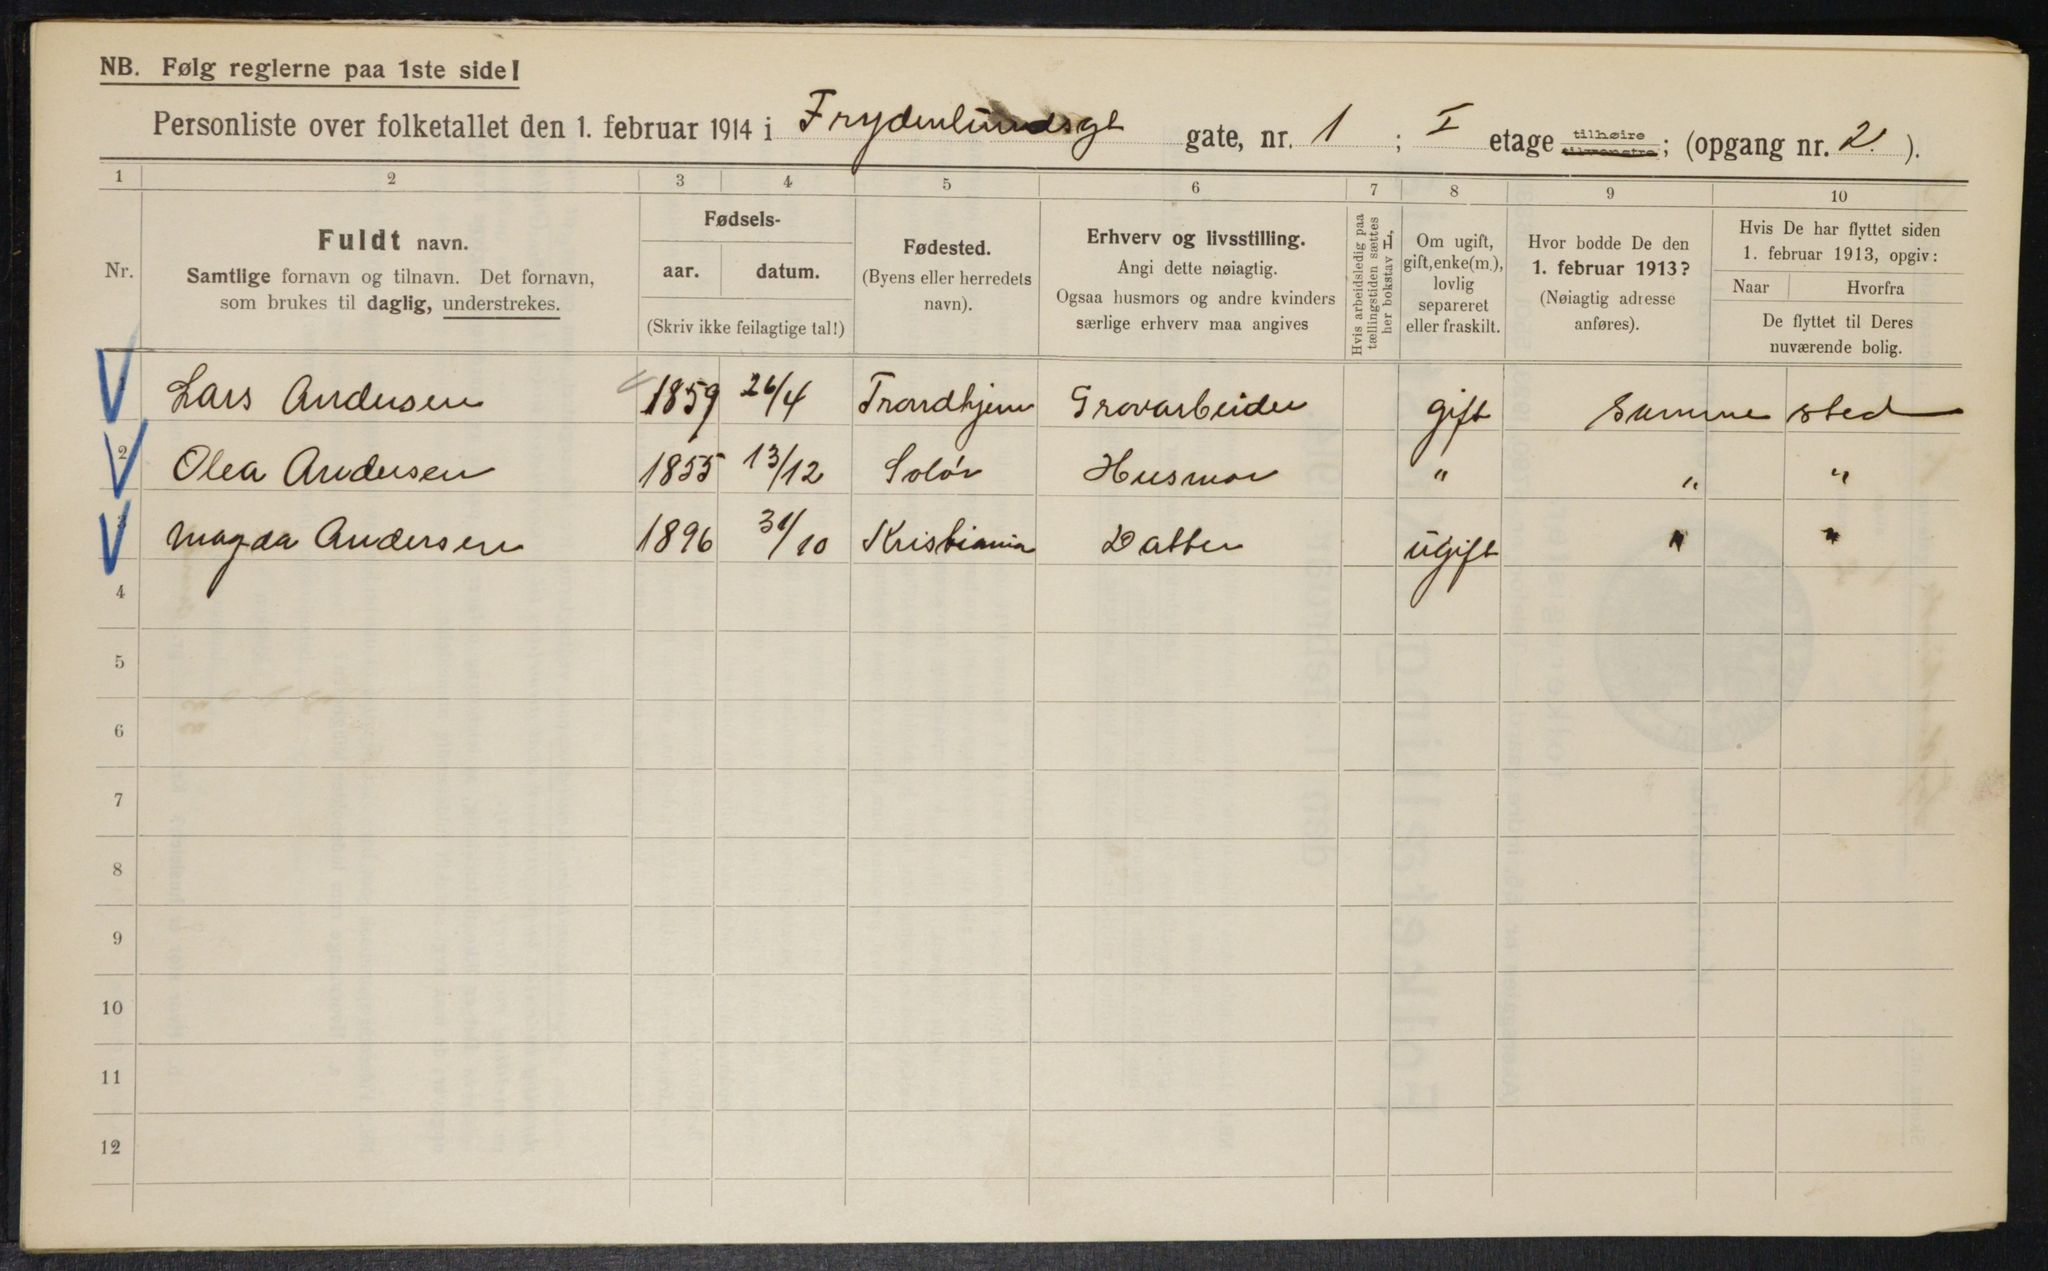 NB. Følg reglerne paa 1ste side!
Personliste over folketallet den 1. februar 1914 i Frydenlundsgt gate, nr. 1 ; I etage tilhøire tilvenstre; (opgang nr. 2.).
1 2 3 4 5 6 7 8 9 10
Nr.
Fuldt navn.
Samtlige fornavn og tilnavn. Det fornavn,
som brukes til daglig, understrekes.
Fødsels-
aar. datum.
(Skriv ikke feilagtige tal!)
Fødested.
(Byens eller herredets
navn).
Erhverv og livsstilling.
Angi dette nøiagtig.
Ogsaa husmors og andre kvinders
særlige erhverv maa angives
Hvis arbeidsledig paa
tællingstiden sættes
her bokstav L,
Om ugift,
gift, enke(m.),
lovlig
separeret
eller fraskilt.
Hvor bodde De den
1. februar 1913?
(Nøiagtig adresse
anføres).
Hvis De har flyttet siden
1. februar 1913, opgiv:
Naar Hvorfra
De flyttet til Deres
nuværende bolig.
Lars Andersen 1859 26/4 Trondhjem Grovarbeider gift samme sted
2 Olea Andersen 1855 13/12 Solør Husmor " " "
3 Magda Andersen 1896 31/10 Kristiania Datter ugift " "
4
5
6
7
8
9
10
11
12